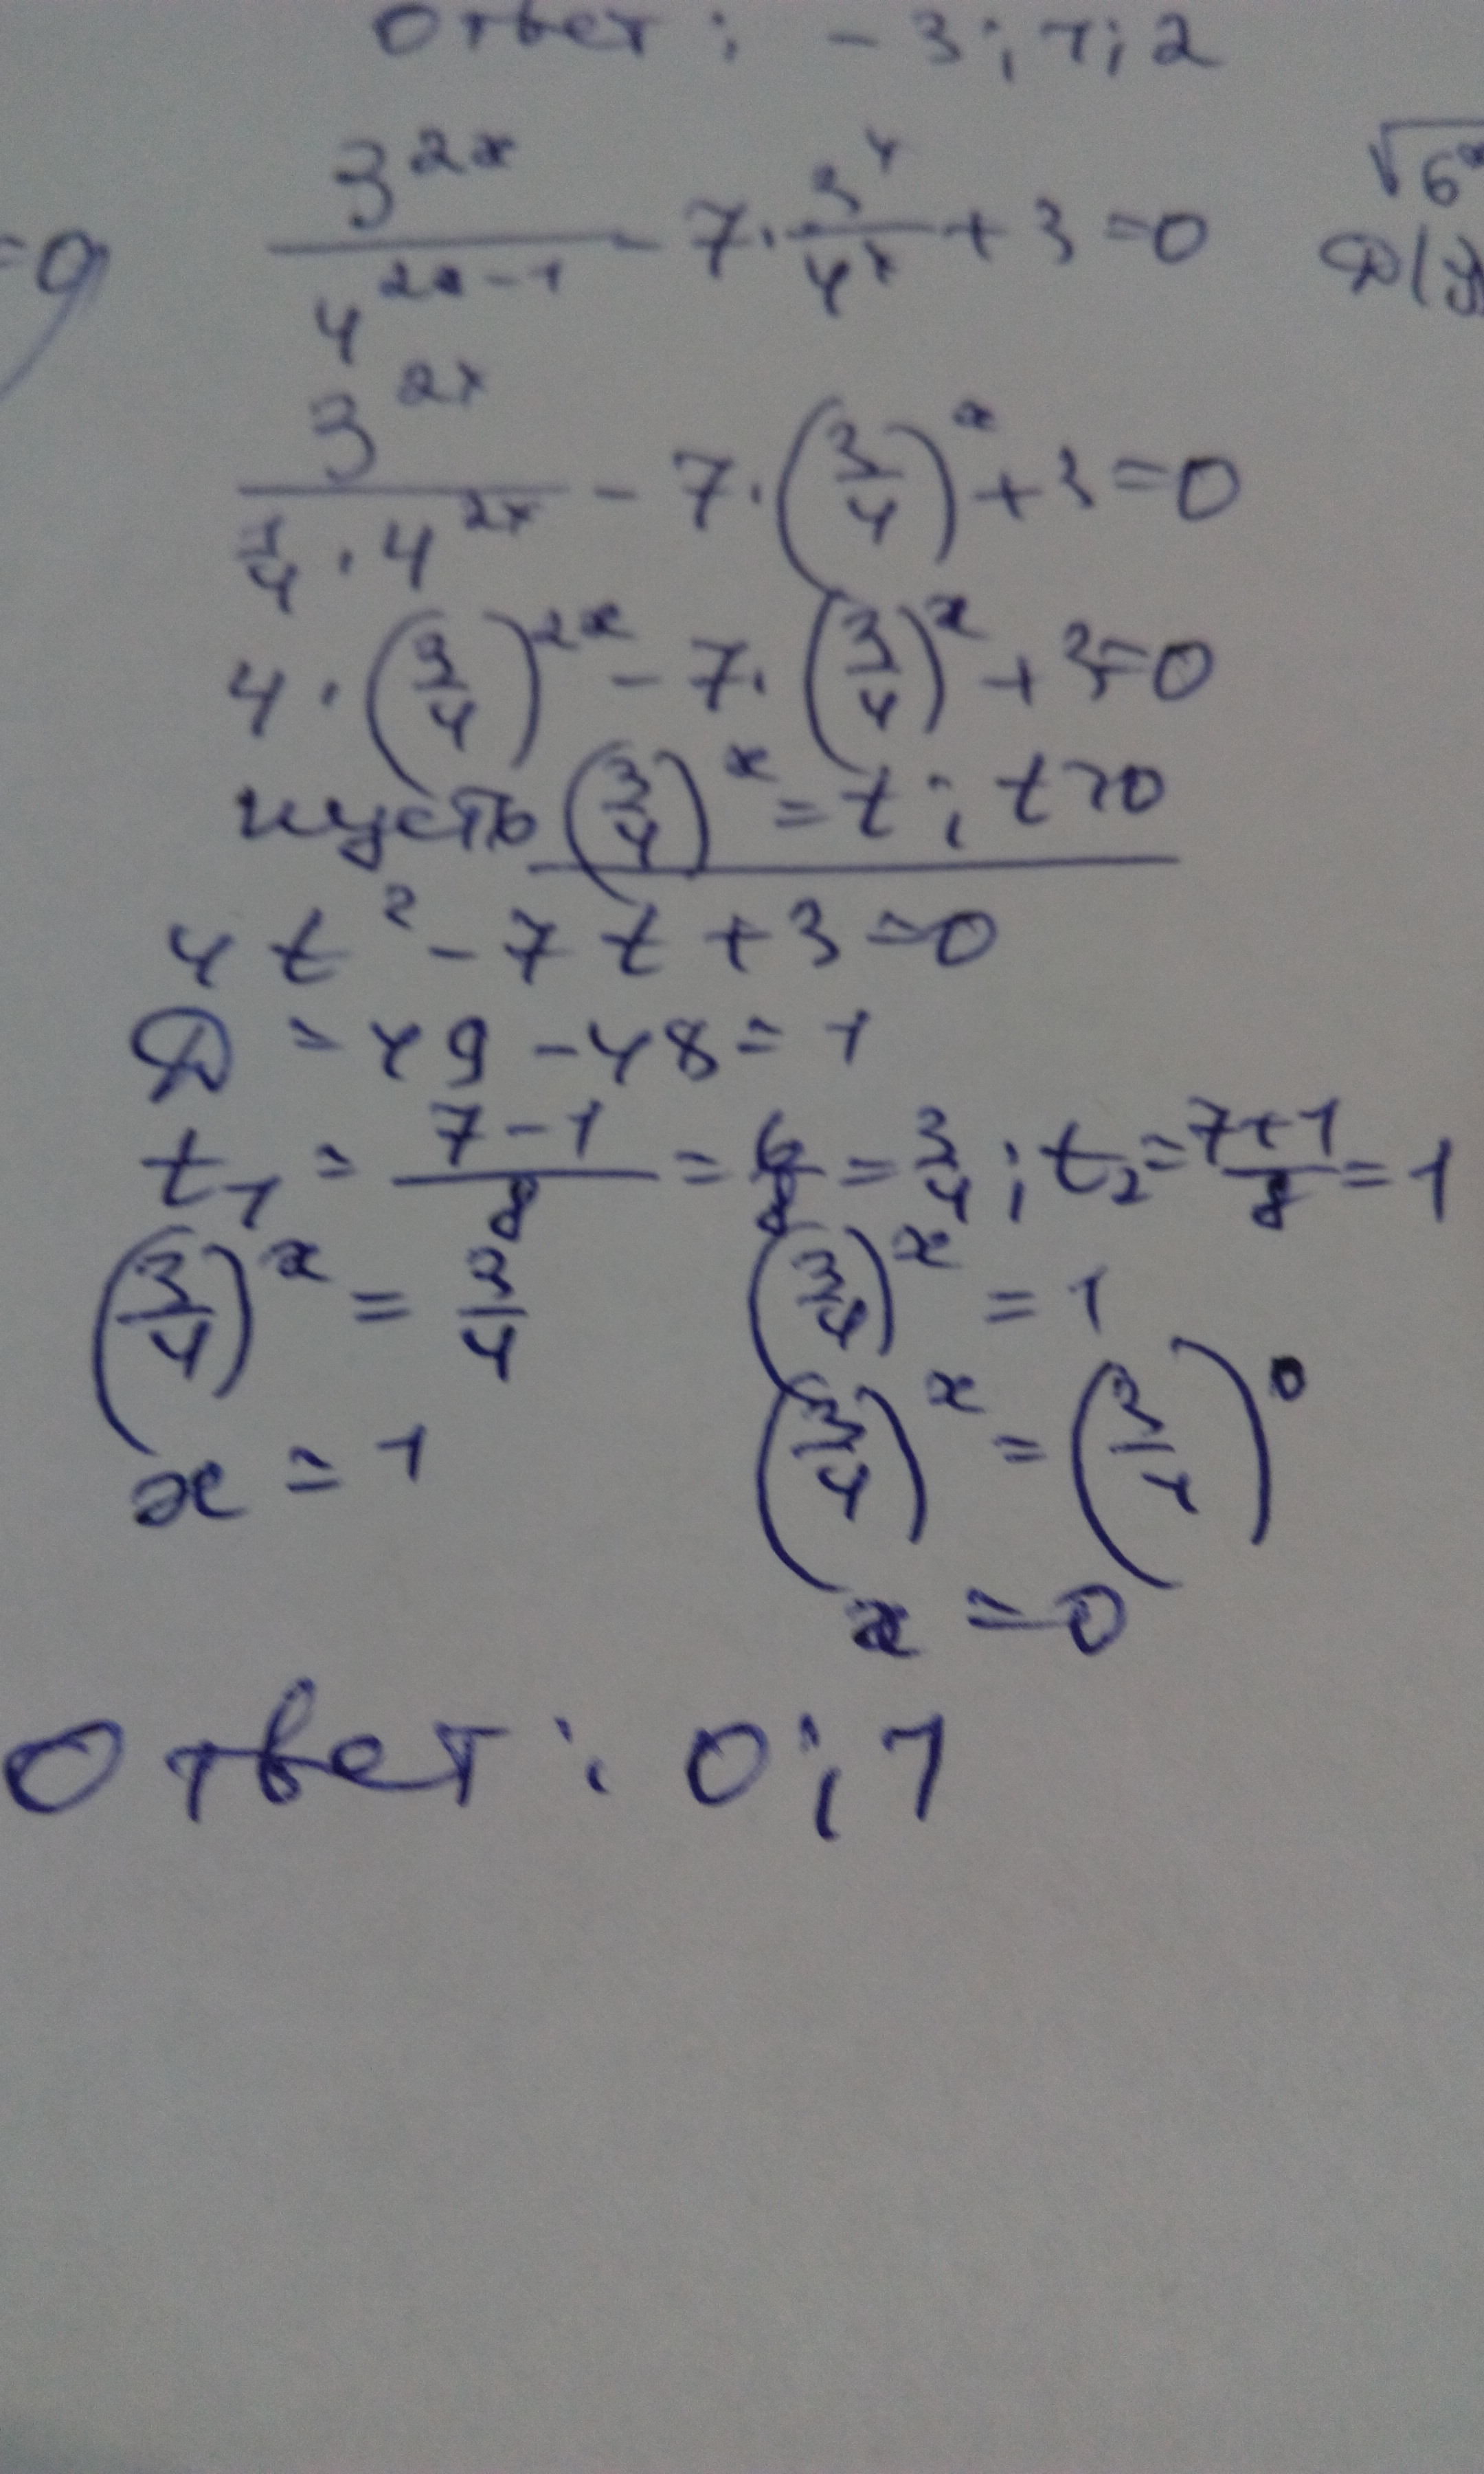 Ответ: -3; 1; 2
=0
3^{2x} / 4^{2x-1} - 7 · 3^x / 4^x + 3 = 0
√6
D(y
3^{2x} / (1/4 · 4^{2x}) - 7 · (3/4)^x + 3 = 0
4 · (3/4)^{2x} - 7 · (3/4)^x + 3 = 0
пусть (3/4)^x = t; t>0
4t² - 7t + 3 = 0
D = 49 - 48 = 1
t₁ = (7-1)/8 = 6/8 = 3/4; t₂ = (7+1)/8 = 1
(3/4)^x = 3/4 (3/4)^x = 1
x = 1 (3/4)^x = (3/4)^0
x = 0
Ответ: 0; 1